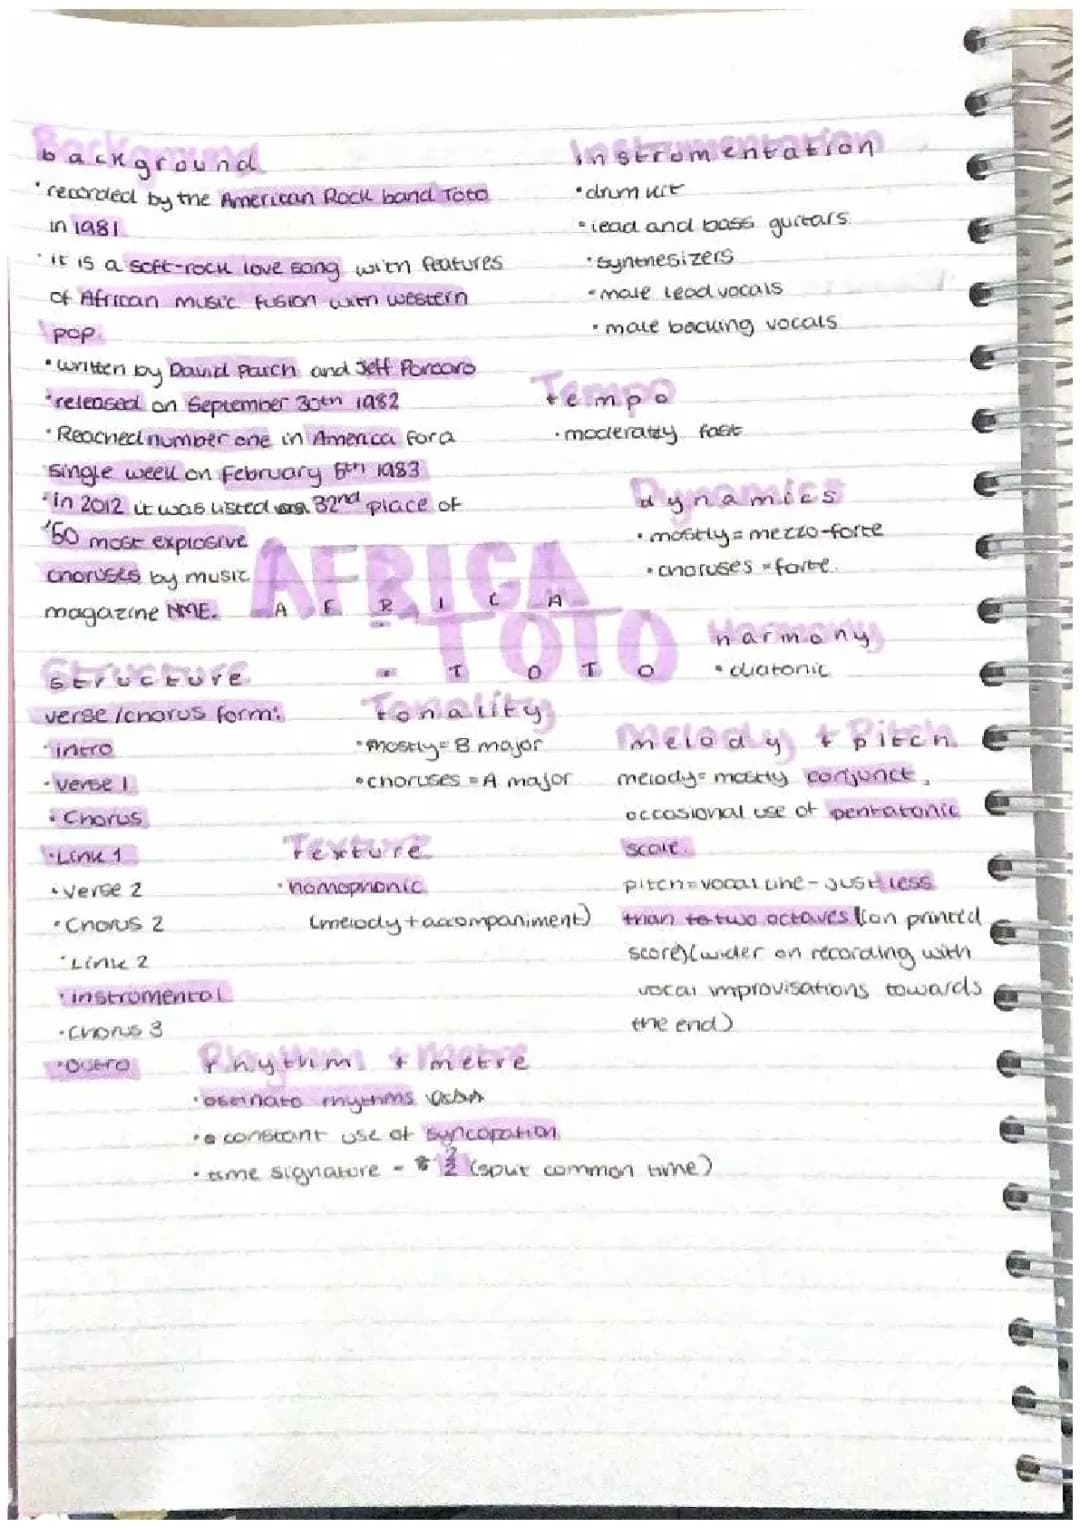 background
• recorded by the American Rock band Toto
in 1981
• it is a soft-rock love song with features
of African music fusion with western
pop.
• written by David Paich and Jeff Porcaro
• released on September 30th 1982
• Reached number one in America for a
single week on February 5th 1983
• in 2012 it was listed 32nd place of
'50 most explosive
choruses by music
magazine NME.
Instrumentation
• drum kit
• lead and bass guitars
• synthesizers
• male lead vocals
• male backing vocals
Tempo
• moderatly fast
dynamics
• mostly = mezzo-forte
• choruses = forte.
AFRICA
TOTO
harmony
• diatonic
Structure
verse/chorus form:
• intro
• verse 1
• Chorus
• Link 1
• verse 2
• Chorus 2
• Link 2
• instromental
• chorus 3
• outro
Tonality
• mostly = B major
• choruses = A major
Texture
• homophonic
(melody + accompaniment)
melody + pitch
melody = mostly conjunct,
occasional use of pentatonic
scale.
pitch = vocal line - just less
than to two octaves (on printed
score) (wider on recording with
vocal improvisations towards
the end)
Rhythm + metre
• ostinato rhythms
• constant use of syncopation
• time signature - 2/2 (split common time)